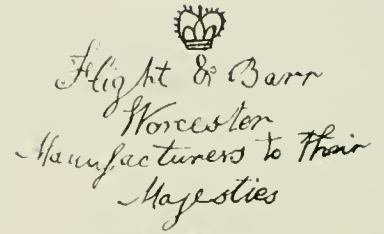 Flight & Barr
Worcester
Manufacturers to Their
Majesties